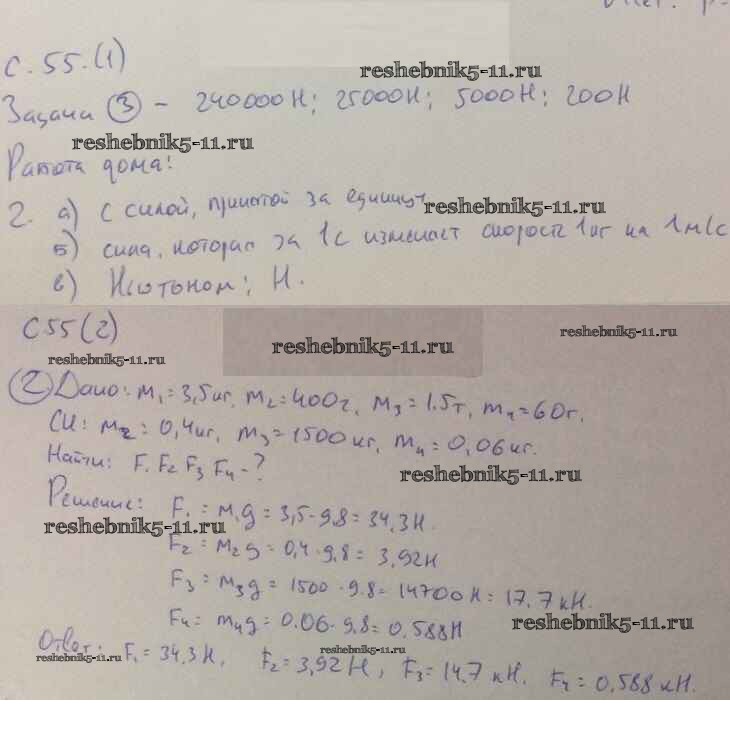 с. 55.(1)
reshebnik5-11.ru
Задача (3) - 240000Н; 25000Н; 5000Н; 200Н
reshebnik5-11.ru
Работа дома:
2. а) С силой, принятой за единицу
reshebnik5-11.ru
б) сила, которая за 1с изменяет скорость 1кг на 1м/с
в) Ньютоном; Н.
С 55(2)
reshebnik5-11.ru
reshebnik5-11.ru
reshebnik5-11.ru
(2) Дано: m₁=3,5кг, m₂=400г, m₃=1.5т, m₄=60г.
СИ: m₂=0,4кг, m₃=1500кг, m₄=0,06кг.
Найти: F₁ F₂ F₃ F₄-?
reshebnik5-11.ru
Решение: F₁=m₁g=3,5·9,8=34,3Н.
reshebnik5-11.ru
F₂=m₂g=0,4·9,8=3,92Н
F₃=m₃g=1500·9.8=14700Н=17.7кН.
F₄=m₄g=0.06·9,8=0,588Н
reshebnik5-11.ru
Ответ: F₁=34,3Н, F₂=3,92Н, F₃=14,7кН. F₄=0,588кН.
reshebnik5-11.ru
reshebnik5-11.ru